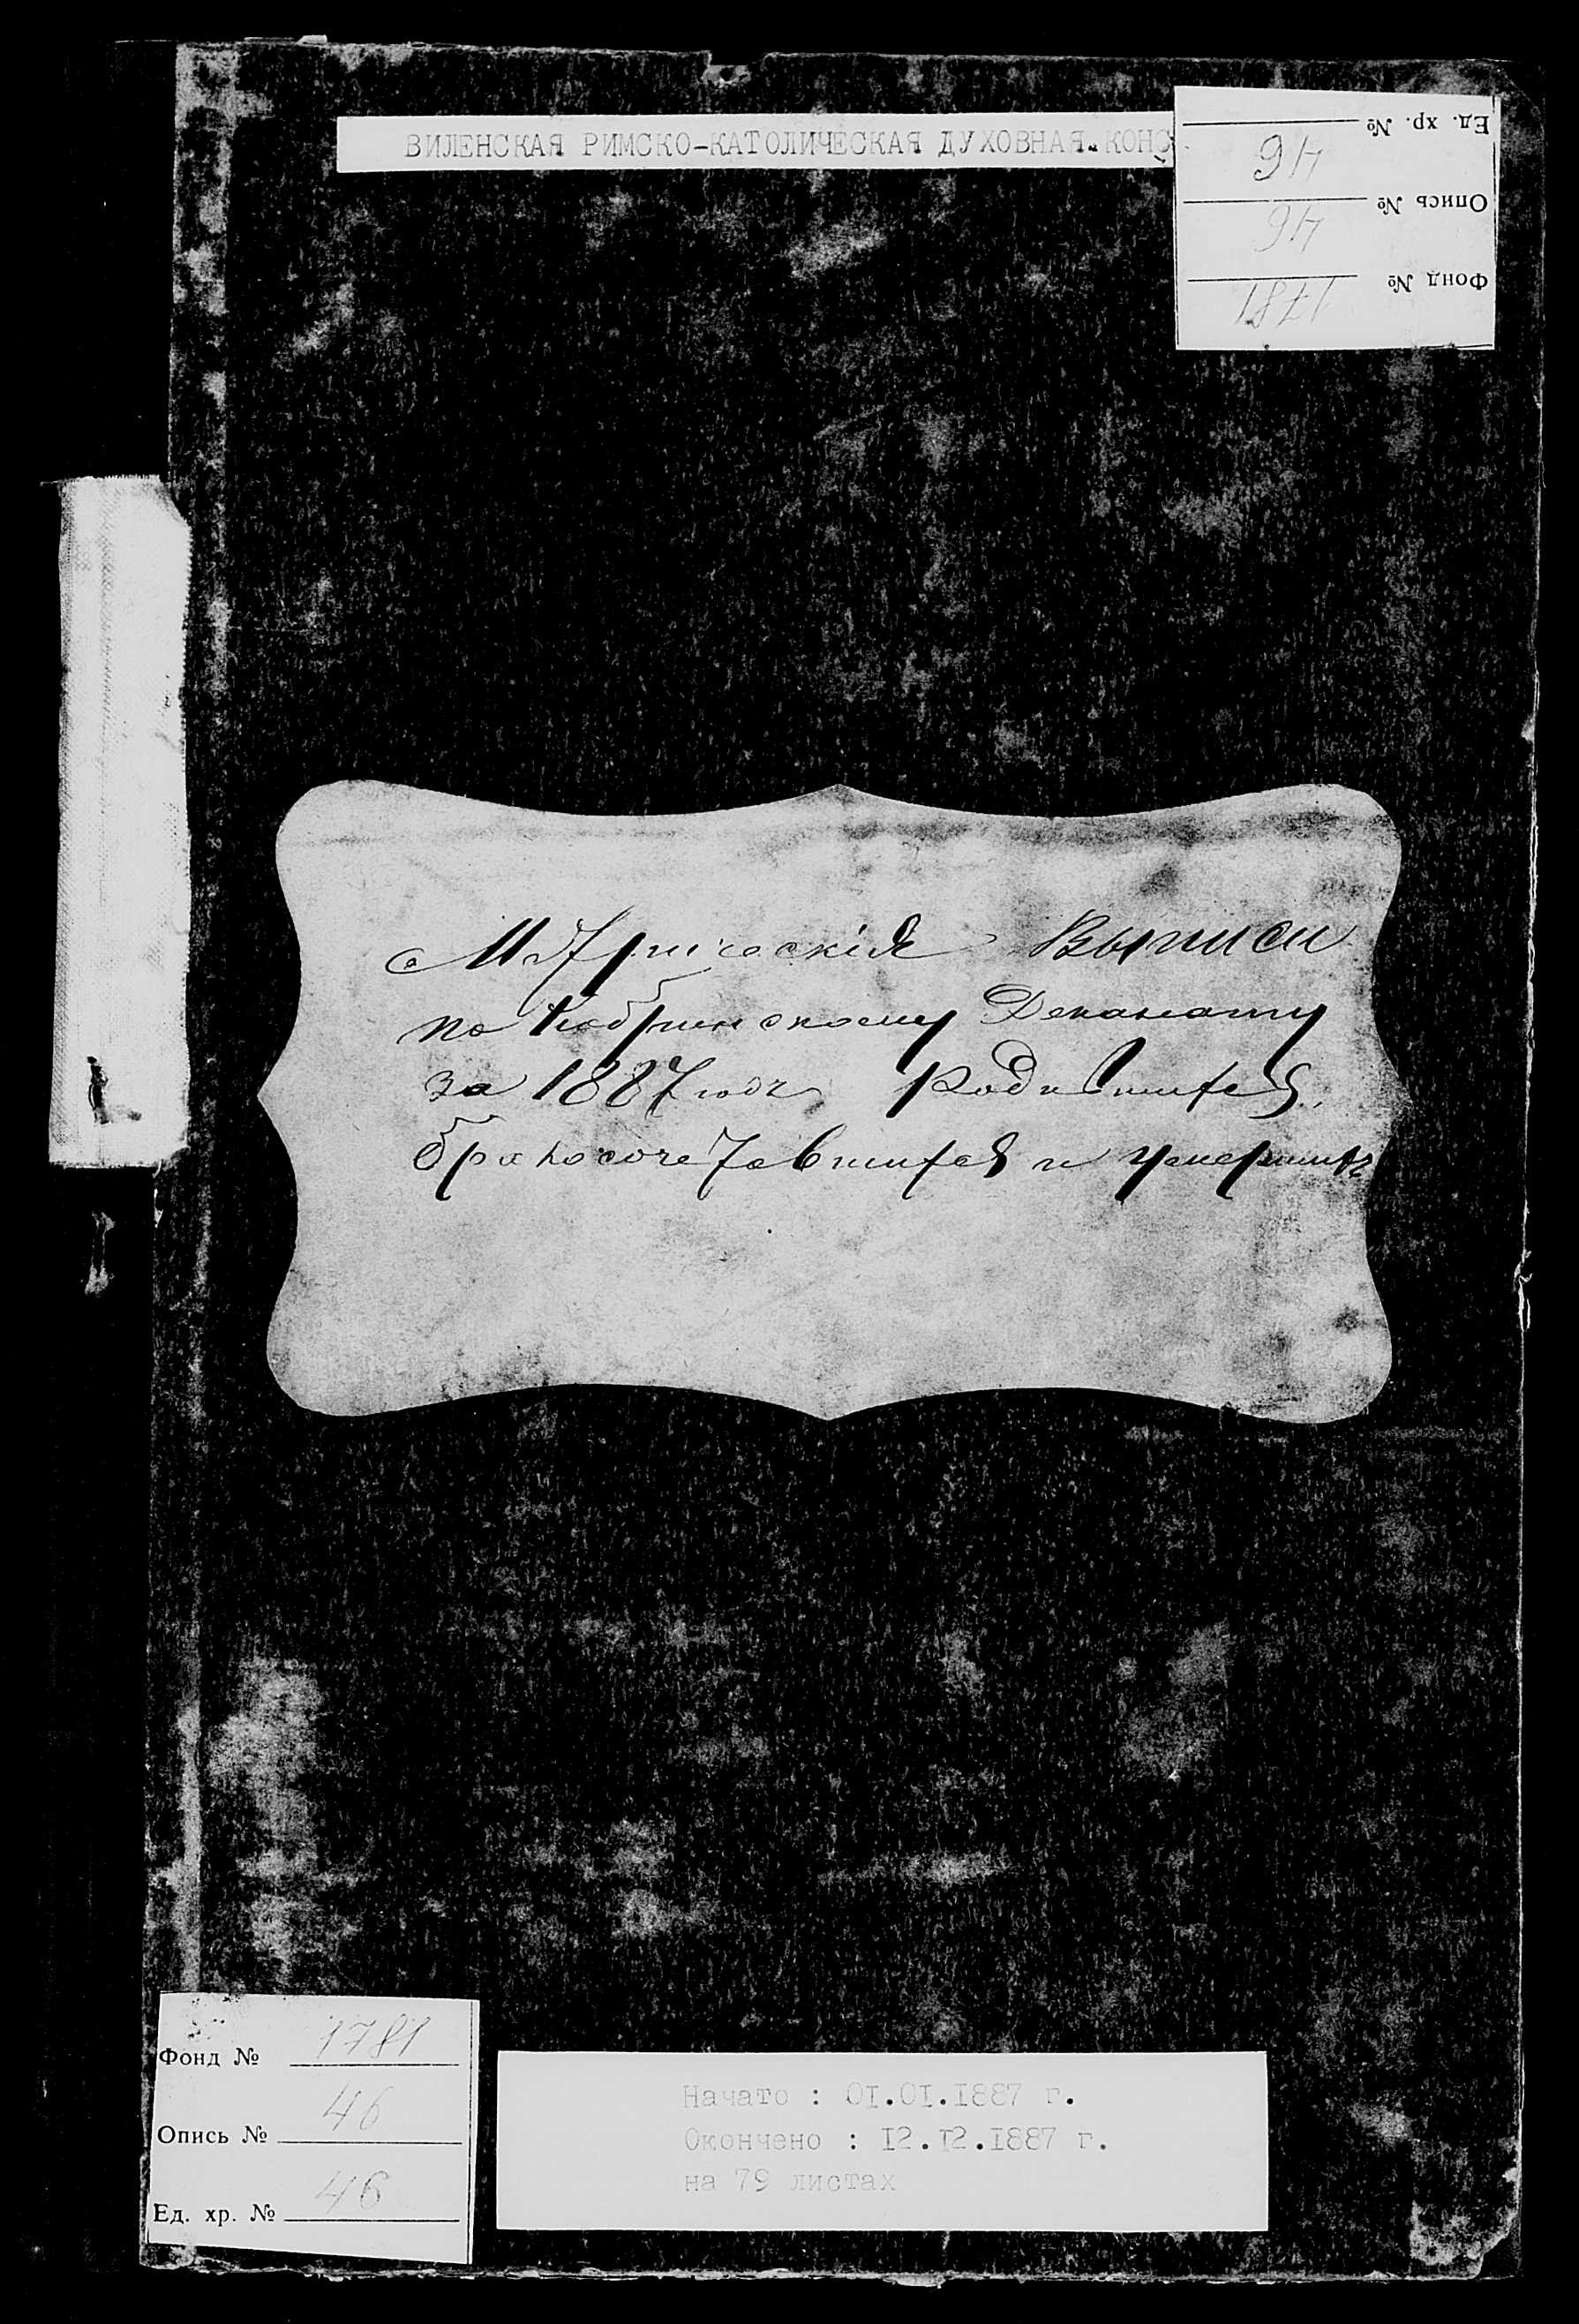 ВИЛЕНСКАЯ РИМСКО-КАТОЛИЧЕСКАЯ ДУХОВНАЯ КОНС
Ед. хр. № 46
Опись № 46
Фонд № 1781
Метрическія Выписи
по Кобринскому Деканату
за 1887 годъ Родившихся,
бракосочетавшихся и умершихъ
Фонд № 1781
Опись № 46
Ед. хр. № 46
Начато : 01.01.1887 г.
Окончено : 12.12.1887 г.
на 79 листах